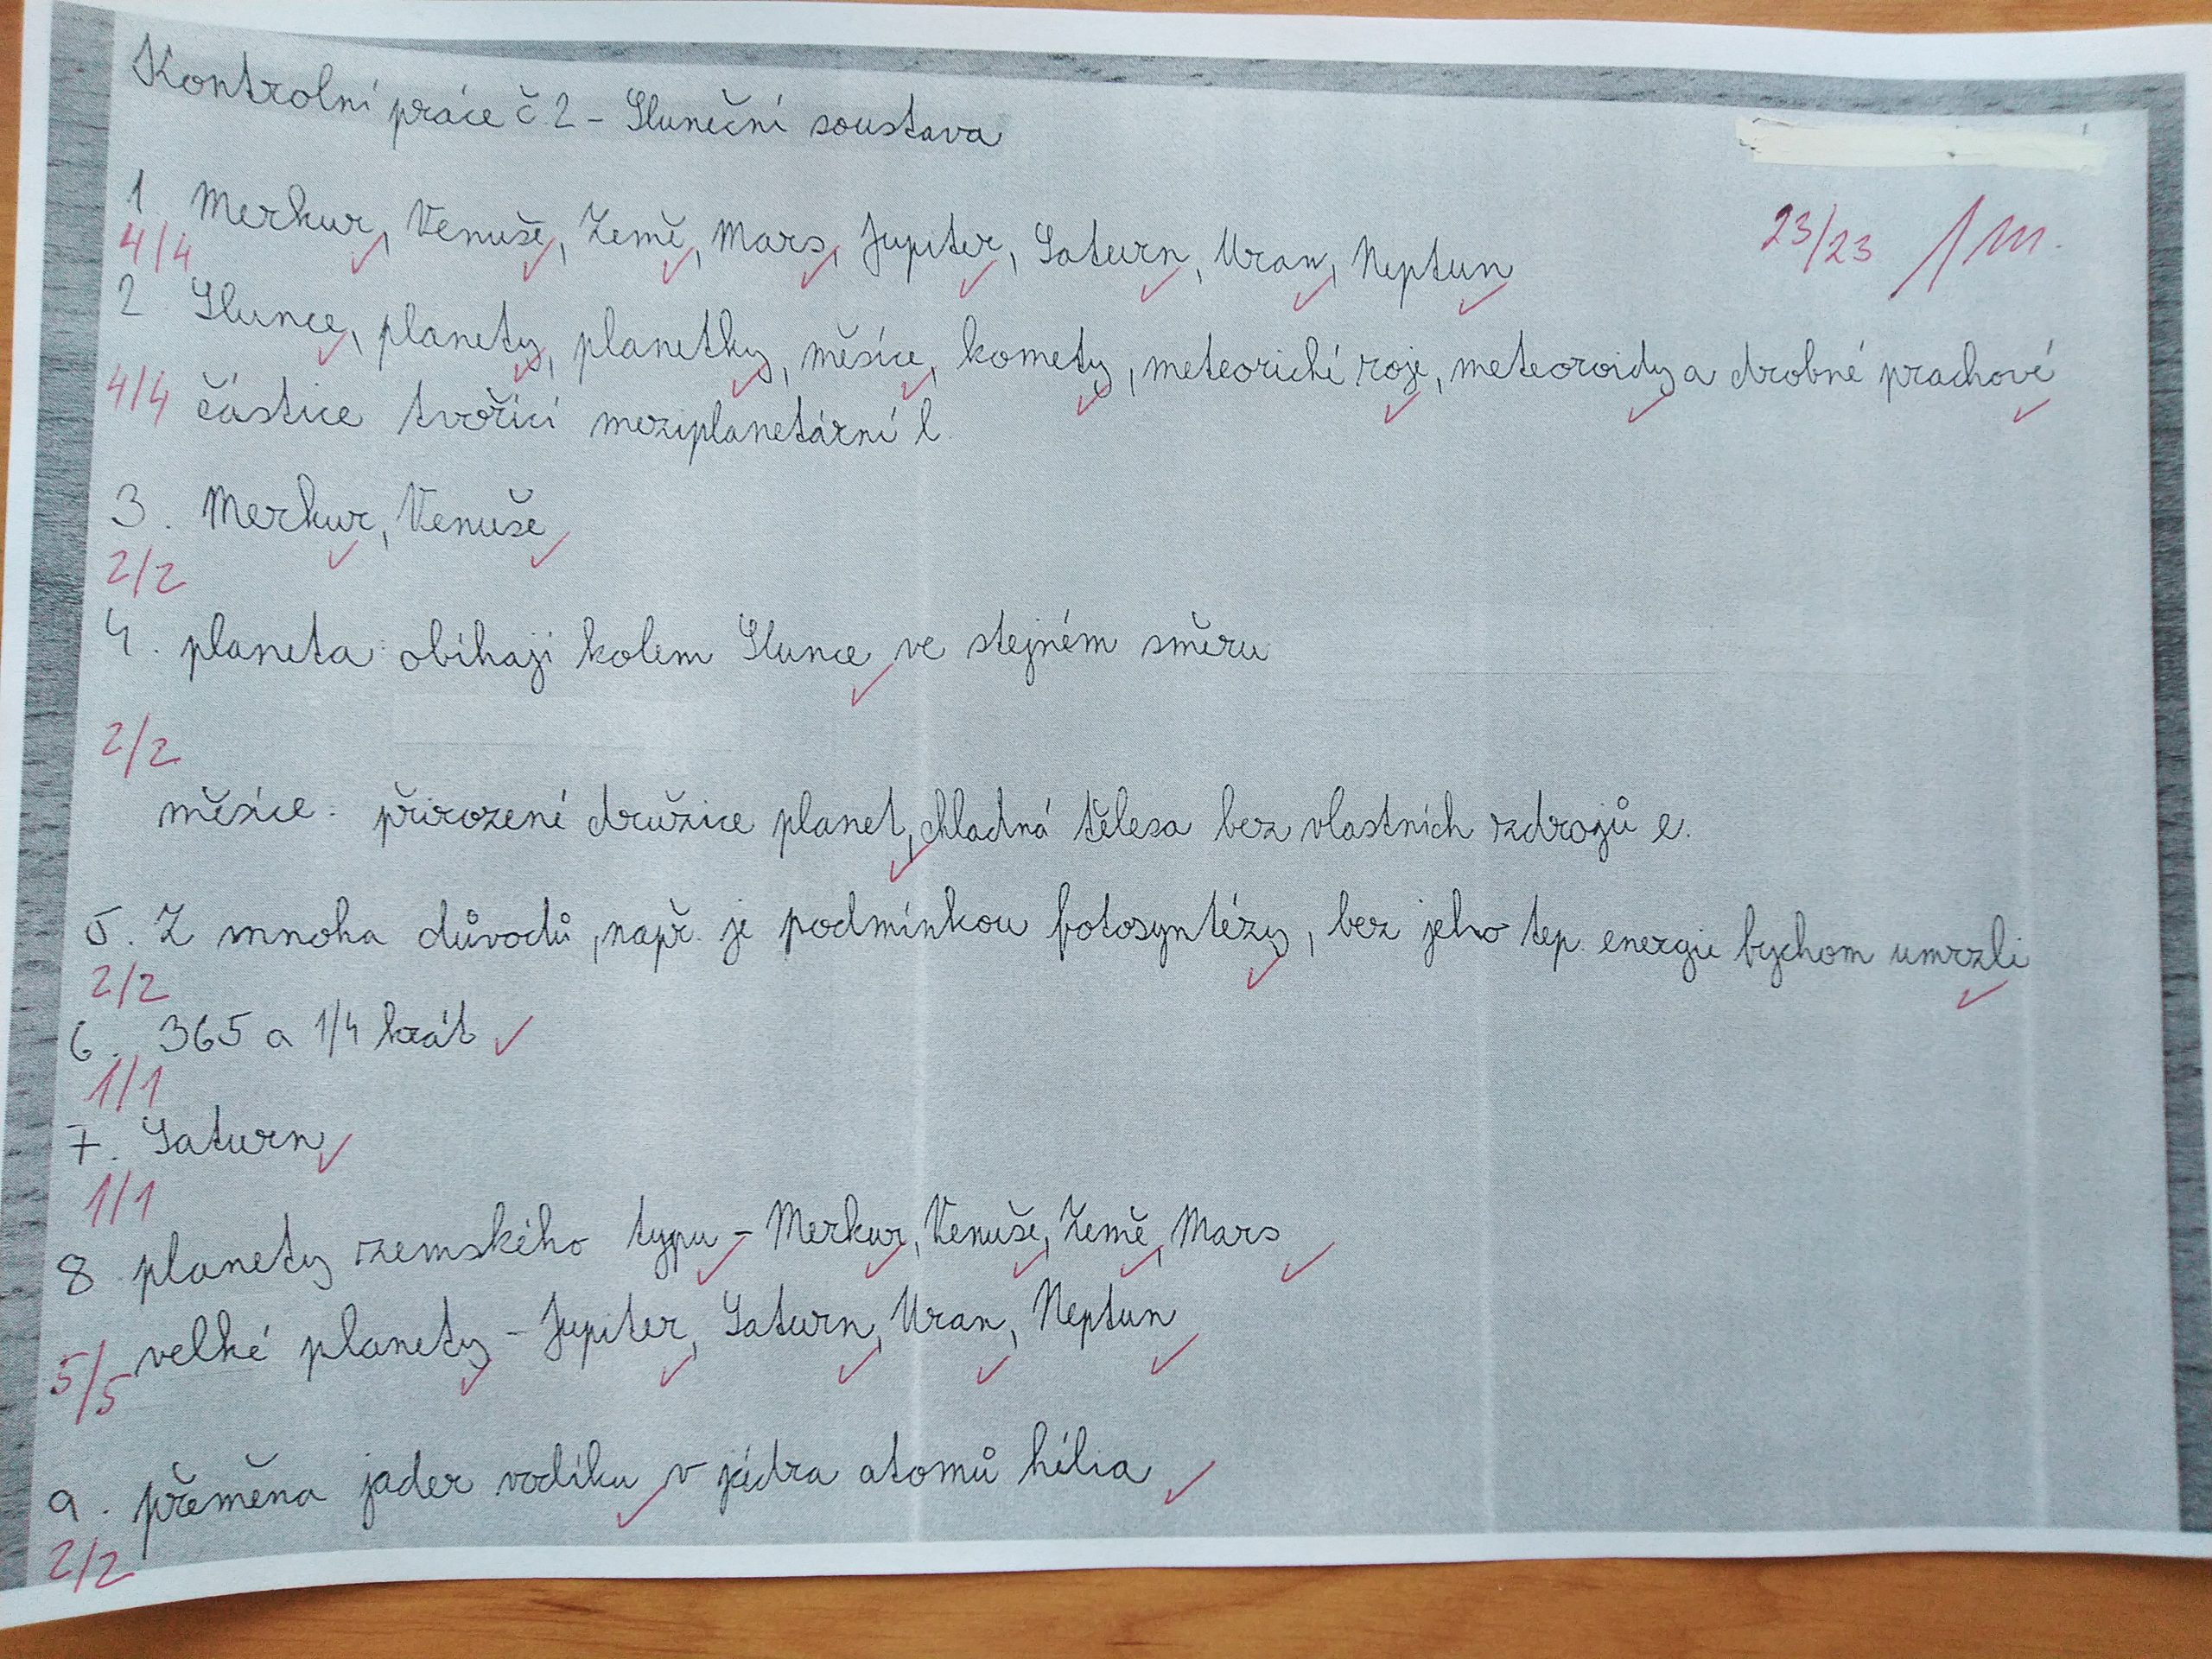 Kontrolní práce č.2 - Sluneční soustava
1. Merkur, Venuše, Země, Mars, Jupiter, Saturn, Uran, Neptun
23/23 1 m.
4/4
2. Slunce, planety, planetky, měsíce, komety, meteorické roje, meteoroidy a drobné prachové
4/4 částice tvořící meziplanetární l.
3. Merkur, Venuše
2/2
4. planeta: obíhají kolem Slunce ve stejném směru
2/2
měsíce: přirozené družice planet, chladná tělesa bez vlastních zdrojů e.
5. Z mnoha důvodů, např. je podmínkou fotosyntézy, bez jeho tep. energie bychom umrzli
2/2
6. 365 a 1/4 krát
1/1
7. Saturn
1/1
8. planety zemského typu - Merkur, Venuše, Země, Mars
velké planety - Jupiter, Saturn, Uran, Neptun
5/5
9. přeměna jader vodíku v jádra atomů hélia
2/2